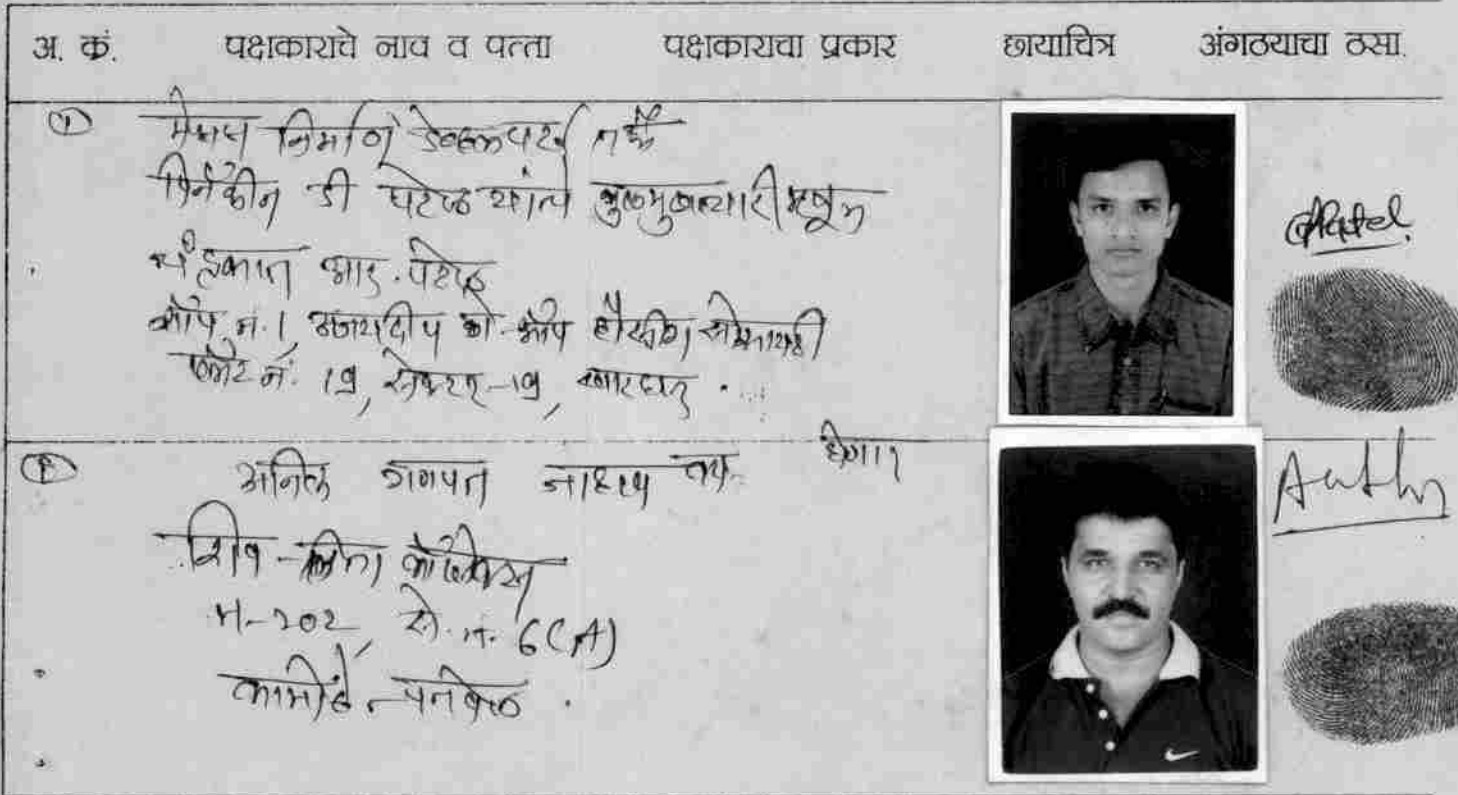 अ. क्रं. पक्षकाराचे नाव व पत्ता पक्षकाराचा प्रकार छायाचित्र अंगठयाचा ठसा.
① मेसर्स निर्माण डेव्हलपर्स तर्फे
डी पटेल यांचे कुलमुखत्यारी म्हणून
चंद्रकांत आर. पटेल
शॉप नं. 1, को-ऑप हौसिंग सोसायटी
प्लॉट नं. 19, सेक्टर-19, खारघर.
अनिल गणपत तर्फे घेणार
शिव-
M-202, से. नं. 6(A)
कामोठे, पनवेल.